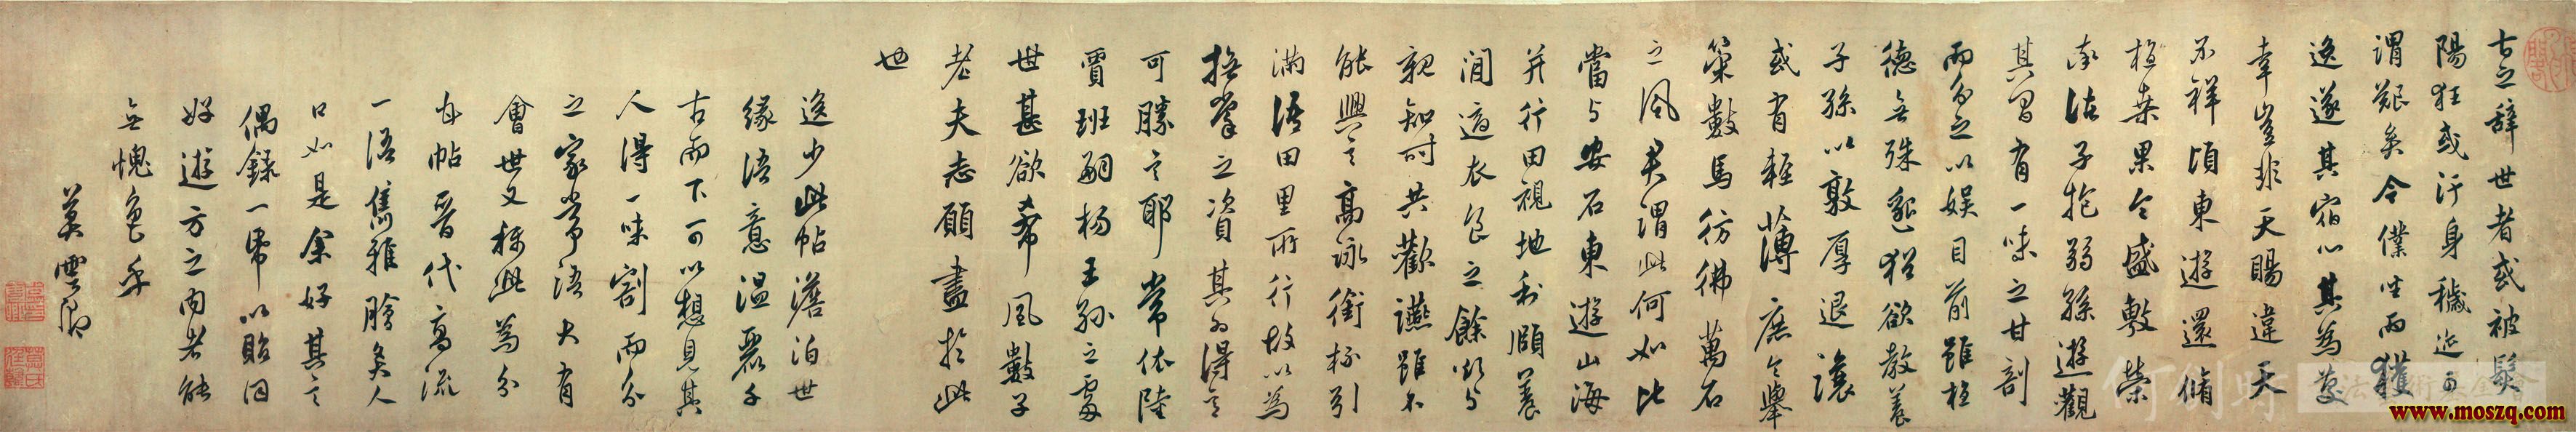 古之辞世者或被髮
陽狂或汙身穢迹可
謂艱矣今僕坐而獲
逸遂其宿心其為慶
幸豈非天賜違天
不祥頃東遊還脩
植桑果今盛敷榮
率諸子抱弱孫遊觀
其間有一味之甘割
而分之以娛目前雖植
德無殊邈猶欲教養
子孫以敦厚退讓
或有輕薄庶令舉
策數馬彷彿萬石
之風君謂此何如比
當与安石東遊山海
并行田視地利頤養
閒適衣食之餘欲与
親知時共歡讌雖不
能興言高詠銜杯引
滿語田里所行故以為
撫掌之資其為得意
可勝言耶常依陸
賈班嗣楊王孫之處
世甚欲希風數子
老夫志願盡於此
也
逸少此帖澹泊世
緣語意溫麗千
古而下可以想見其
人得一味割而分
之家常語大有
會世又稱此為分
甘帖晉代高流
一語雋雅膾炙人
口如是余好其言
偶錄一帋以貽同
好遊方之內者能
無愧色乎
莫雲卿
何創時書法藝術基金會
www.moszq.com